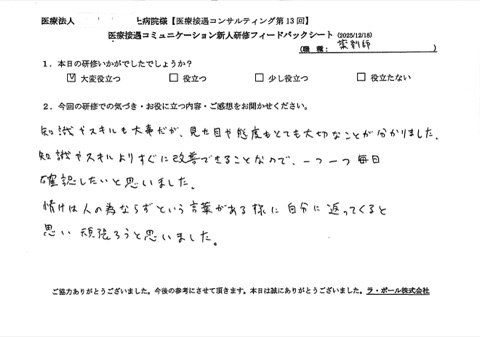 医療法人 病院様【医療接遇コンサルティング第13回】
医療接遇コミュニケーション新人研修フィードバックシート (2025/12/18)
(職 種: 薬剤師 )
1．本日の研修いかがでしたでしょうか？
☑ 大変役立つ □ 役立つ □ 少し役立つ □ 役立たない
2．今回の研修での気づき・お役に立つ内容・ご感想をお聞かせください。
知識やスキルも大事だが、見た目や態度もとても大切なことが分かりました。
知識やスキルよりすぐに改善できることなので、一つ一つ毎日
確認したいと思いました。
情けは人の為ならずという言葉がある様に自分に返ってくると
思い頑張ろうと思いました。
ご協力ありがとうございました。今後の参考にさせて頂きます。本日は誠にありがとうございました。ラ・ポール株式会社